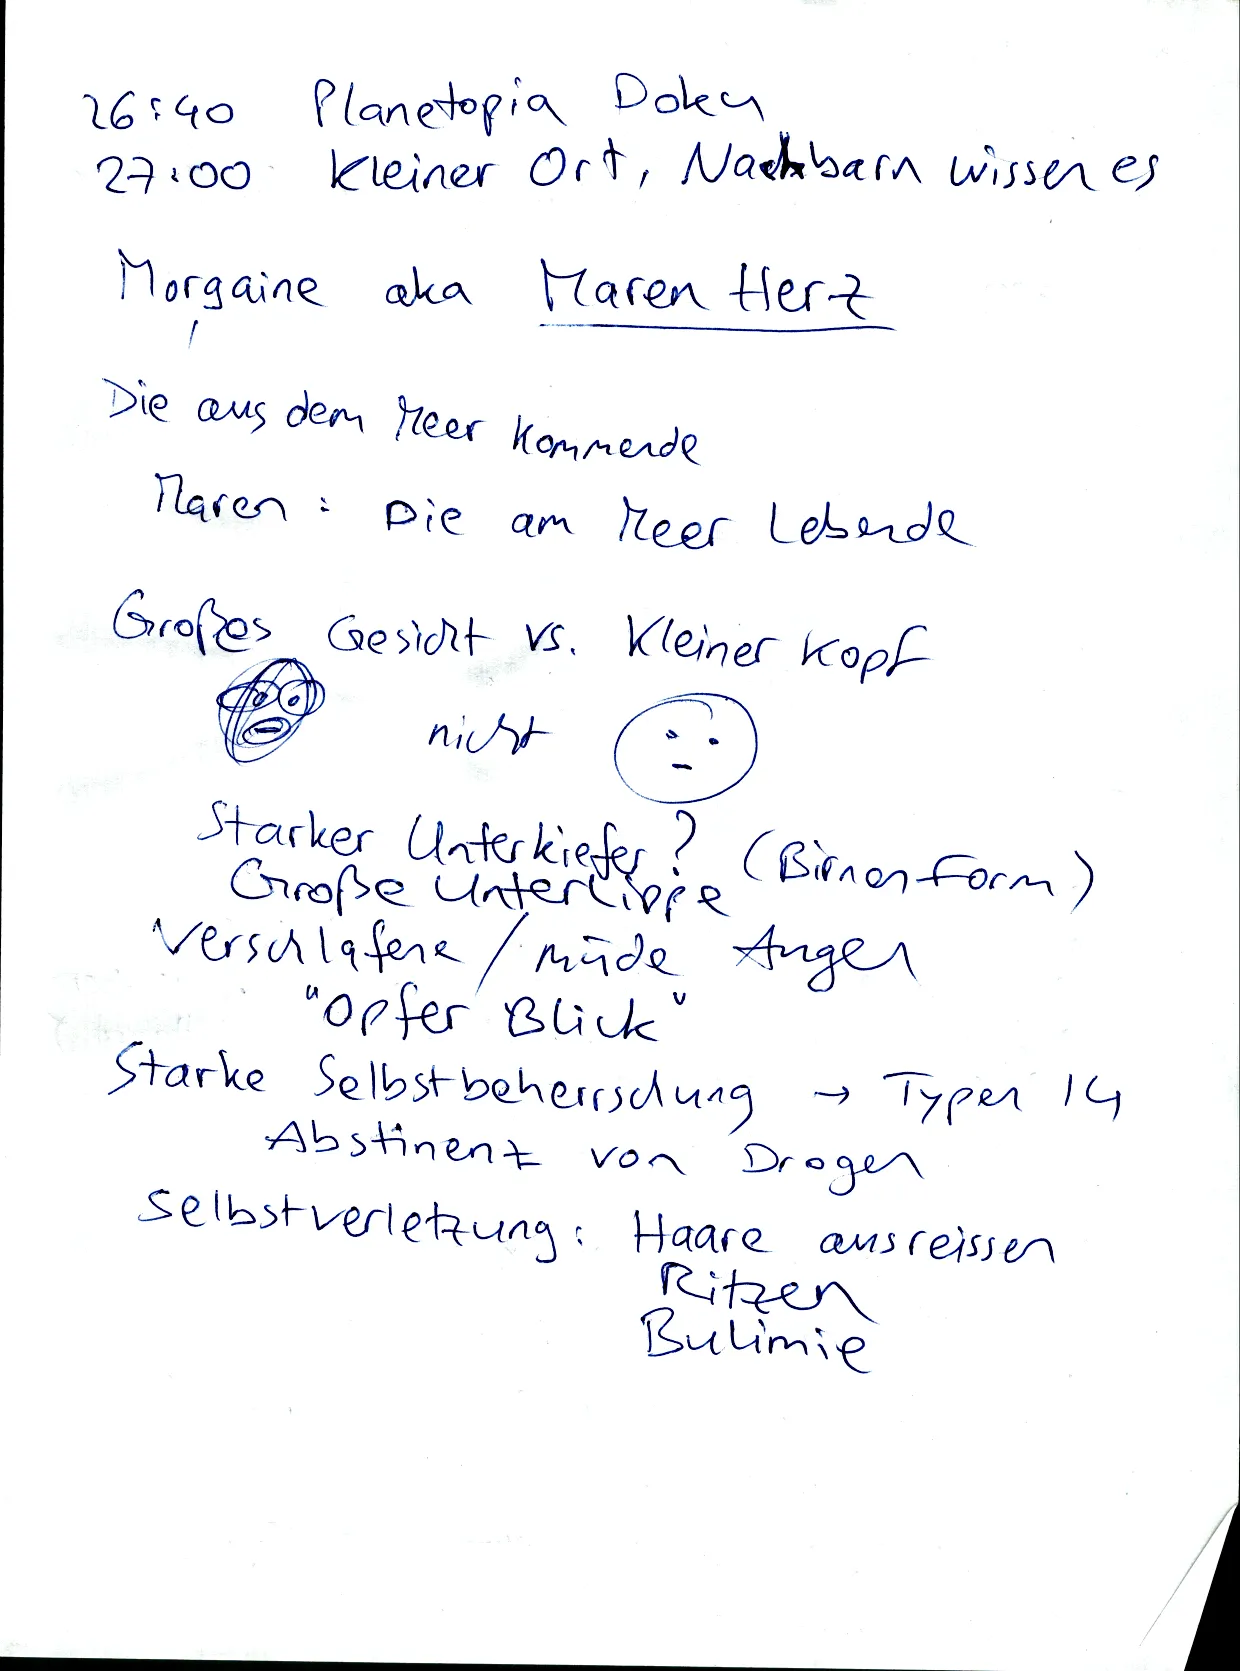 26:40 Planetopia Doku
27:00 Kleiner Ort, Nachbarn wissen es
Morgaine aka Maren Herz
Die aus dem Meer kommende
Maren: Die am Meer Lebende
Großes Gesicht vs. Kleiner Kopf
nicht
Starker Unterkiefer? (Birnenform)
Große Unterlippe
Verschlafene / müde Augen
"Opfer Blick"
Starke Selbstbeherrschung → Typen 14
Abstinenz von Drogen
Selbstverletzung: Haare ausreissen
Ritzen
Bulimie